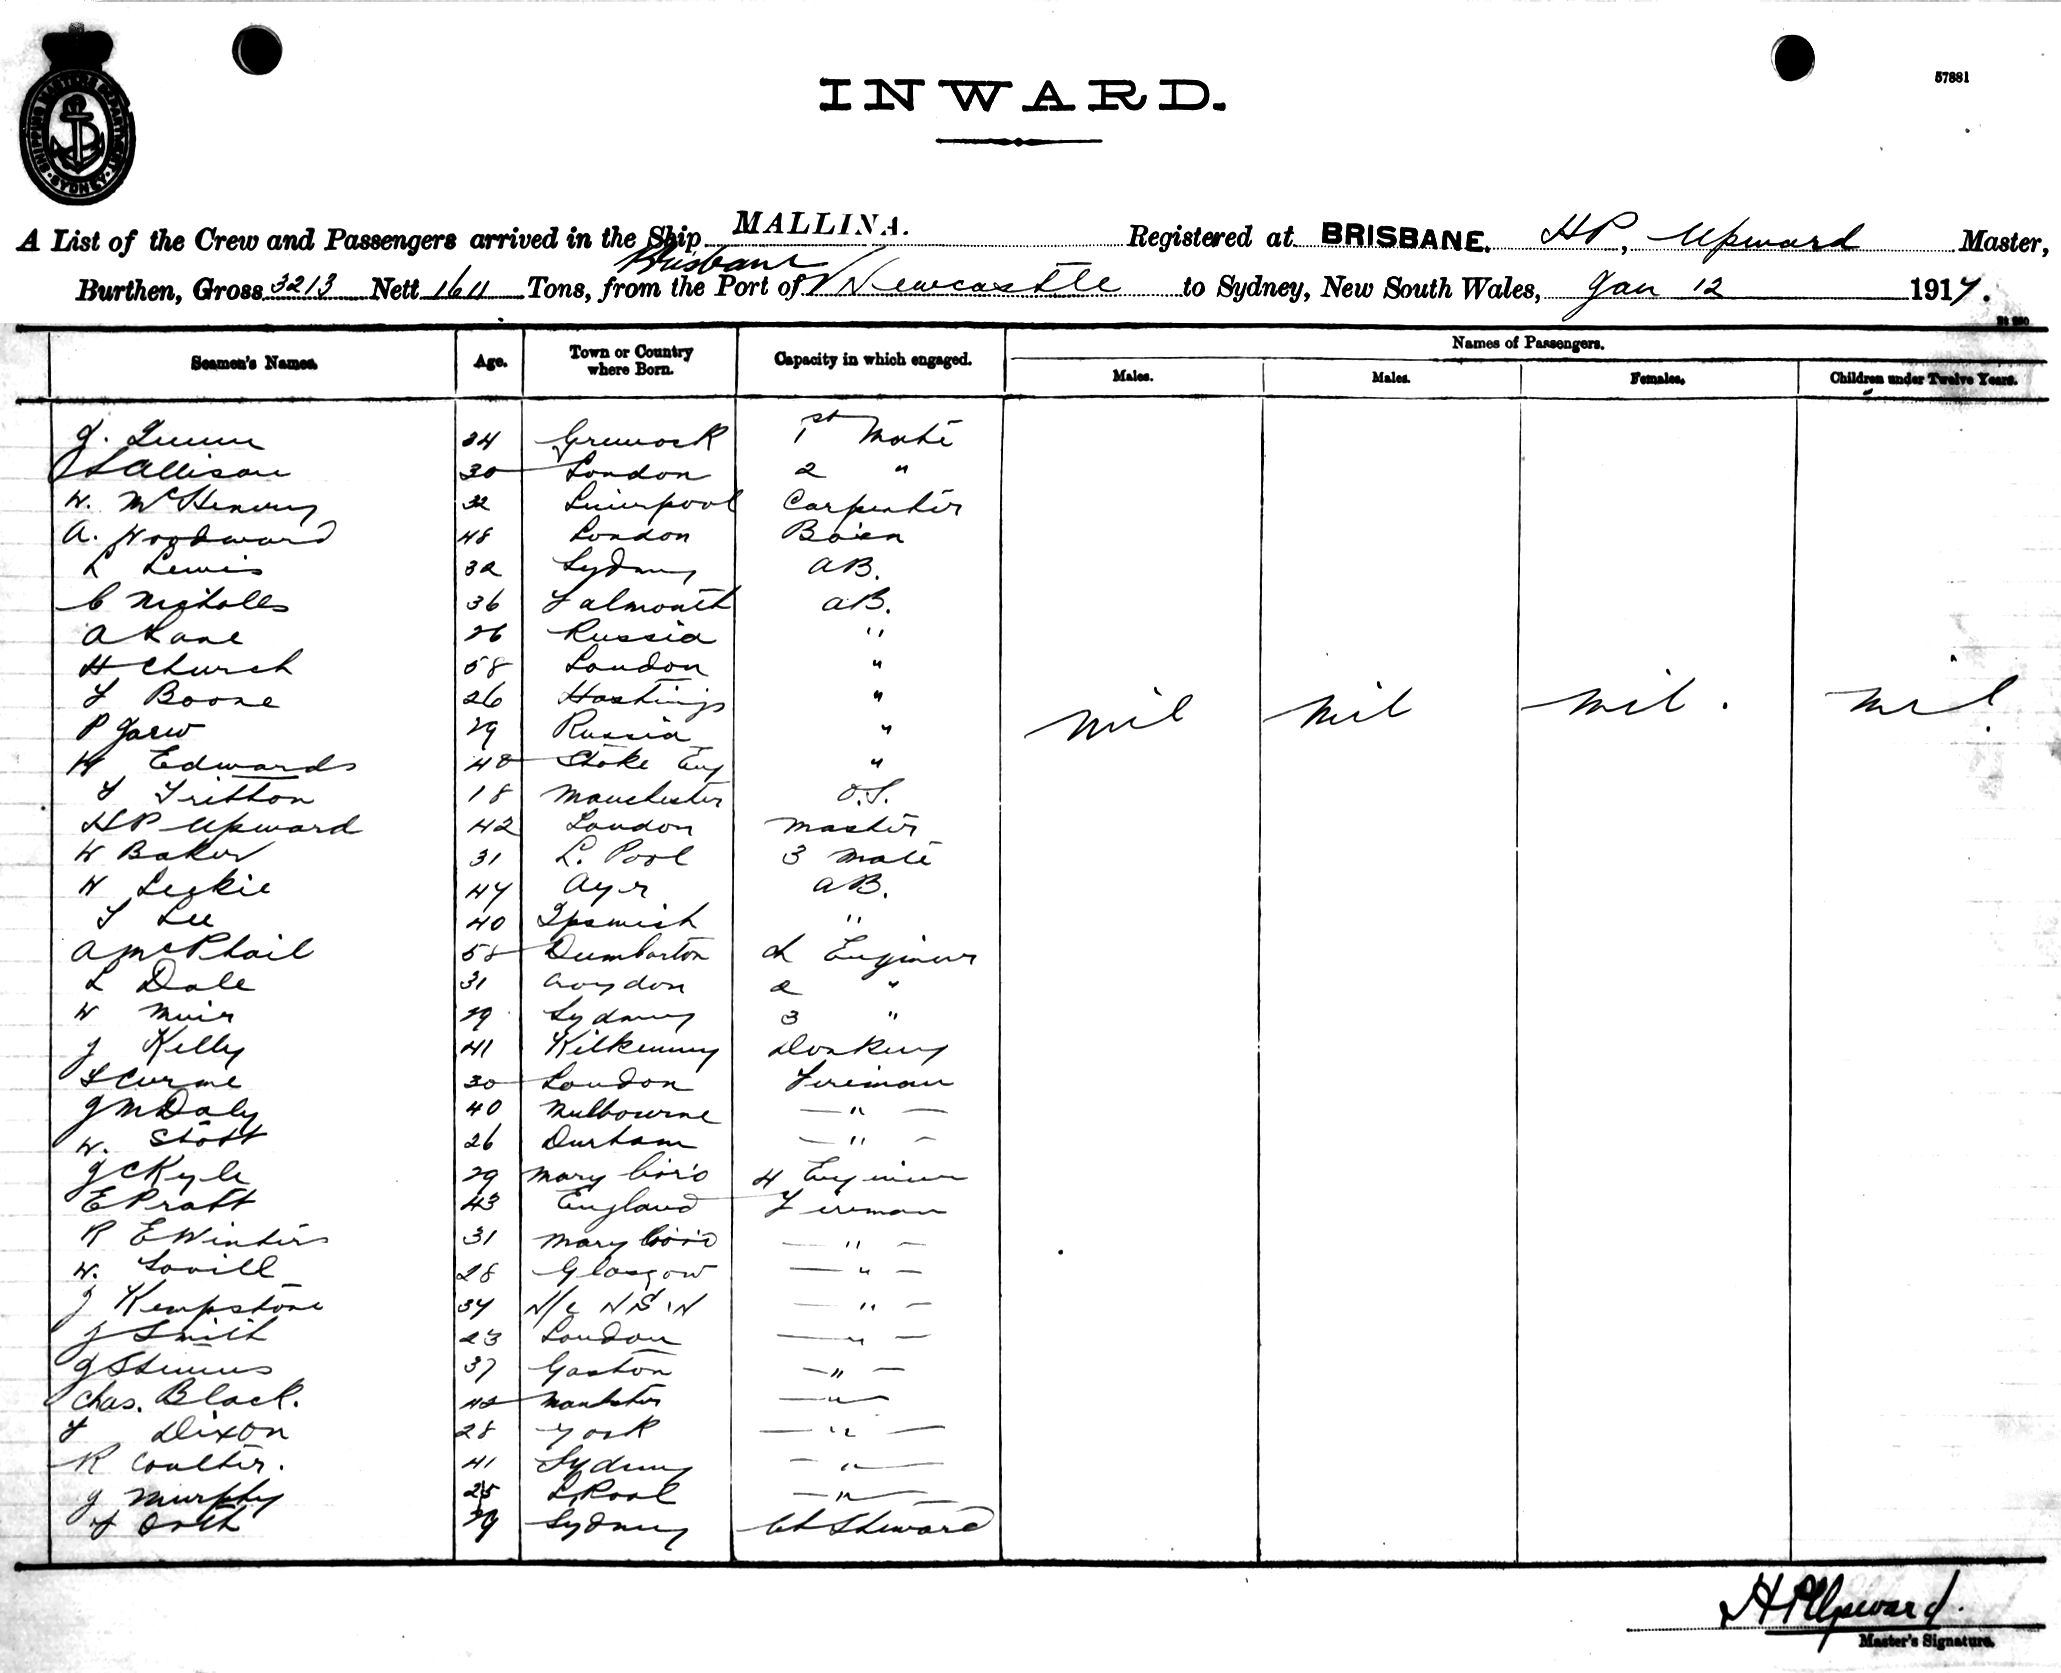 SHIPPING MASTERS DEPARTMENT
SYDNEY
57881
INWARD.
A List of the Crew and Passengers arrived in the Ship MALLINA. Registered at BRISBANE. HP, Upward Master,
Brisbane
Burthen, Gross 3213 Nett 1611 Tons, from the Port of Newcastle to Sydney, New South Wales, Jan 12 1917.
Seamen's Names. Age. Town or Country where Born. Capacity in which engaged. Names of Passengers.
Males. Males. Females. Children under Twelve Years.
34 Greenock 1st Mate
Allison 30 London 2 "
W. McHenery 32 Liverpool Carpenter
A. Woodward 48 London Bo'sn
L Lewis 32 Sydney AB.
C Nicholls 36 Falmouth AB.
A Lane 26 Russia "
H Church 58 London "
F Boone 26 Hastings "
P 29 Russia "
nil nil nil. nil
H Edwards 40 Stoke Eng "
F Tritton 18 Manchester O.S.
HP Upward 42 London Master
W Baker 31 L. Pool 3 Mate
W Leckie 47 Ayr AB.
T Lee 40 Ipswich "
A McPhail 58 Dumbarton Ch Engineer
L Dale 31 Croydon 2 "
W Muir 29 Sydney 3 "
J Kelly 41 Kilkenny Donkey
L Curme 30 London Fireman
J M Daly 40 Melbourne — " —
W. Stott 26 Durham — " —
J C Kyle 29 Mary boro 4 Engineer
E Pratt 43 England Fireman
R E Winters 31 Mary boro — " —
W. Lovill 28 Glasgow — " —
J Kempstone 34 N/c N S W — " —
J Smith 23 London — " —
37 Gaston — " —
Chas. Black. 42 Manchster — " —
F Dixon 28 York — " —
R Coulter. 41 Sydney — " —
J Murphy 25 L Pool — " —
39 Sydney Ch Steward
HP Upward.
Master's Signature.